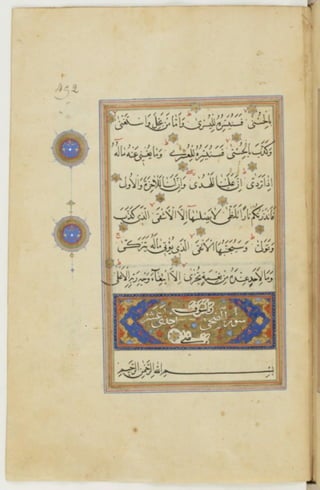 452
بِالْحُسْنَىٰ فَسَنُيَسِّرُهُ لِلْيُسْرَىٰ وَأَمَّا مَنْ بَخِلَ وَاسْتَغْنَىٰ
وَكَذَّبَ بِالْحُسْنَىٰ فَسَنُيَسِّرُهُ لِلْعُسْرَىٰ وَمَا يُغْنِي عَنْهُ مَالُهُ
إِذَا تَرَدَّىٰ إِنَّ عَلَيْنَا لَلْهُدَىٰ وَإِنَّ لَنَا لَلْآخِرَةَ وَالْأُولَىٰ
فَأَنْذَرْتُكُمْ نَارًا تَلَظَّىٰ لَا يَصْلَاهَا إِلَّا الْأَشْقَى الَّذِي كَذَّبَ
وَتَوَلَّىٰ وَسَيُجَنَّبُهَا الْأَتْقَى الَّذِي يُؤْتِي مَالَهُ يَتَزَكَّىٰ
وَمَا لِأَحَدٍ عِنْدَهُ مِنْ نِعْمَةٍ تُجْزَىٰ إِلَّا ابْتِغَاءَ وَجْهِ رَبِّهِ الْأَعْلَىٰ
سورة الضحى احدى عشر
بِسْمِ اللَّهِ الرَّحْمَٰنِ الرَّحِيمِ